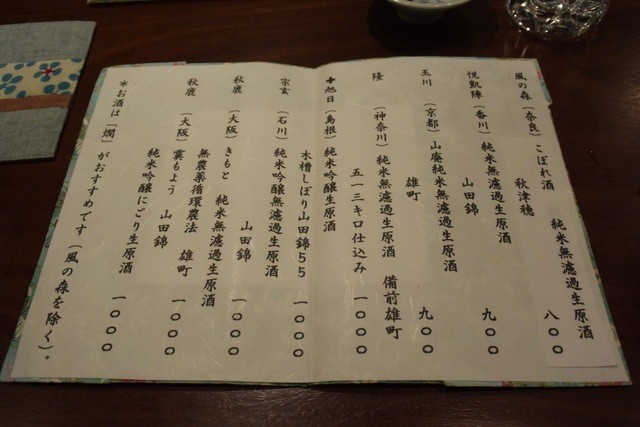 風の森（奈良）こぼれ酒　純米無濾過生原酒
秋津穂　八〇〇
悦凱陣（香川）純米無濾過生原酒
山田錦　九〇〇
玉川（京都）山廃純米無濾過生原酒
雄町　九〇〇
隆（神奈川）純米無濾過生原酒　備前雄町
五一三キロ仕込み　一〇〇〇
旭日（島根）純米吟醸生原酒
木槽しぼり山田錦５５　一〇〇〇
宗玄（石川）純米吟醸無濾過生原酒
山田錦　一〇〇〇
秋鹿（大阪）きもと　純米無濾過生原酒
無農薬循環農法　雄町　一〇〇〇
秋鹿（大阪）霙もよう　山田錦
純米吟醸にごり生原酒　一〇〇〇
＊お酒は「燗」がおすすめです（風の森を除く）。